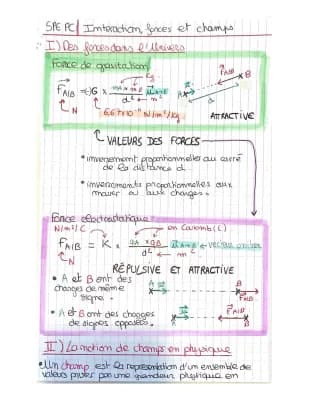 SPE PC | Interaction, forces et champs
I) Des forces dans l'Univers
Force de gravitation
Kg
F A/B = (-) G x mA x mB / d² u A→B
m²
N
6,67x10⁻¹¹ N/m²/kg
F A/B
A B
d
ATTRACTIVE
VALEURS DES FORCES
• inversement proportionnelles au carré
de la distance d.
• inversements proportionnelles aux
masses ou aux charges.
Force électrostatique
N/m²/C en Coulomb (C)
F A/B = K x qA x qB / d² u A→B ← vecteur unitaire
N m²
RÉPULSIVE ET ATTRACTIVE
• A et B ont des
charges de même
signe.
A B
F A/B
• A et B ont des charges
de signes opposées.
A F A/B B
II) La notion de champs en physique
• Un champ est la représentation d'un ensemble de
valeurs prises par une grandeur physique en